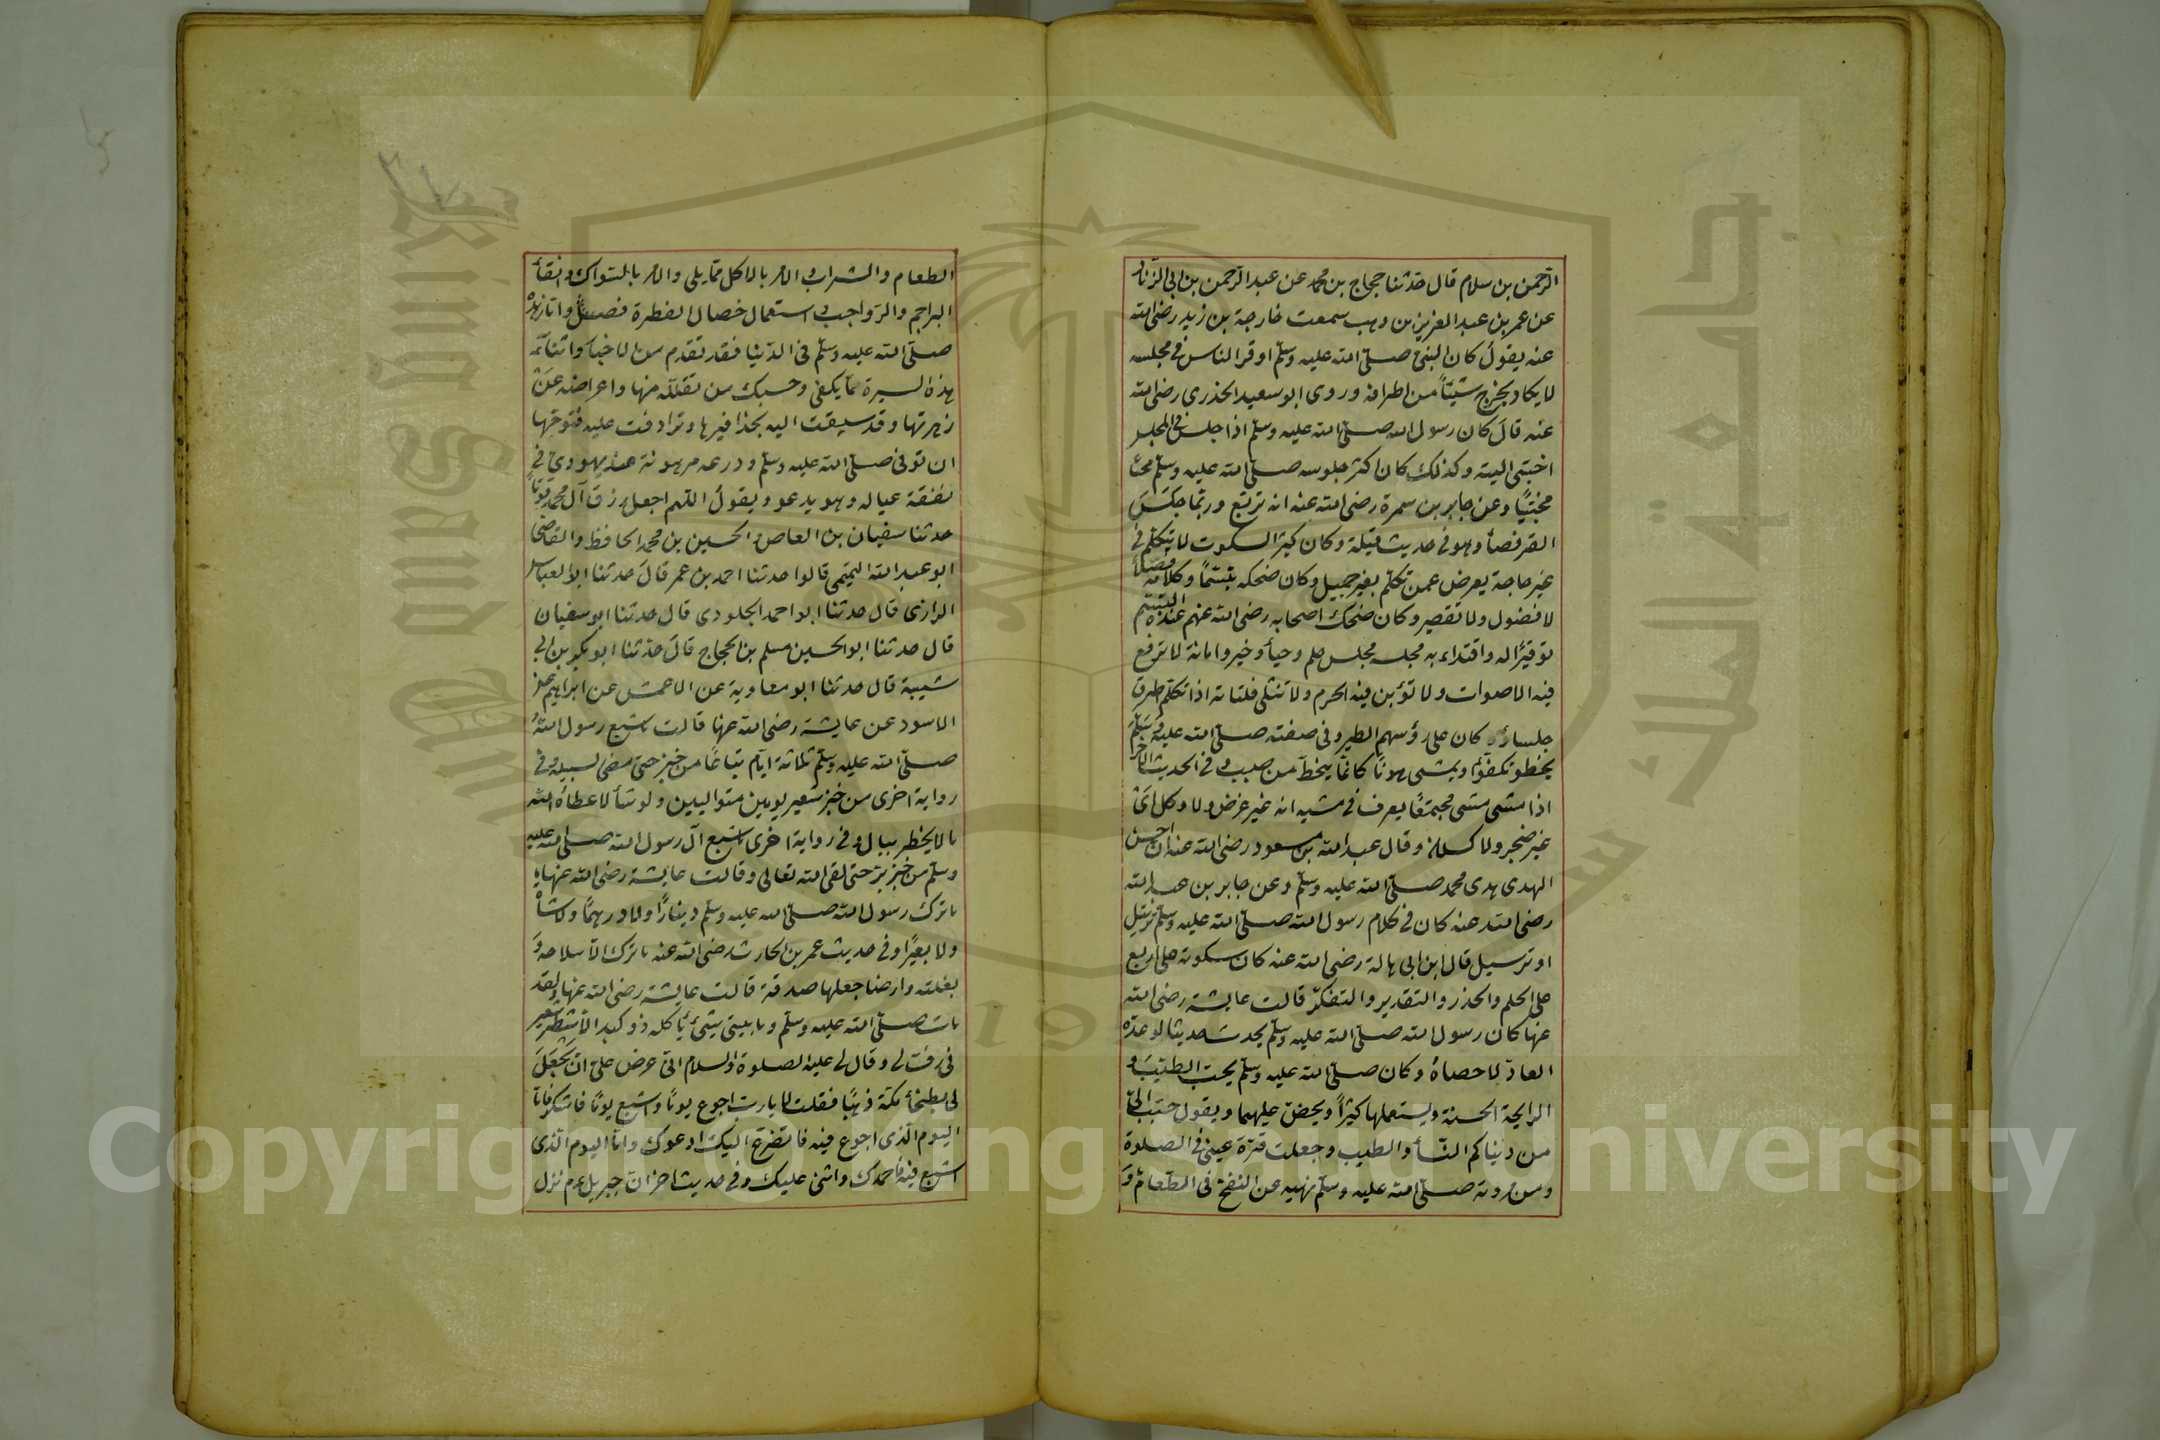 الرحمن بن سلام قال حدثنا حجاج بن محمد عن عبد الرحمن بن ابى الزناد
عن عمر بن عبد العزيز بن وهب سمعت خارجة بن زيد رضى الله
عنه يقول كان النبى صلى الله عليه وسلم اوقر الناس فى مجلسه
لا يكاد يخرج شيئاً من اطرافه وروى ابو سعيد الخدرى رضى الله
عنه قال كان رسول الله صلى الله عليه وسلم اذا جلس فى المجلس
احتبى اليه وكذلك كان اكثر جلوسه صلى الله عليه وسلم
محتبيًا وعن جابر بن سمرة رضى الله عنه انه تربع وربما جلس
القرفصأ وهو فى حديث قيلة وكان كثير السكوت لا يتكلم فى
غير حاجة يعرض عمن تكلم بغير جميل وكان ضحكه تبسّمًا وكلامه فصلًا
لا فضول ولا تقصير وكان ضحك اصحابه رضى الله عنهم عنده التبسم
توقيرًا له واقتداء به مجلسه مجلس حلم وحيأ وخير وامانة لا ترفع
فيه الاصوات ولا تؤبن فيه الحرم ولا تنثى فلتاته اذا تكلم اطرق
جلساؤه كان على رؤسهم الطير وفى صفته صلى الله عليه وسلم
يخطو تكفؤا ويمشى هونًا كانما ينحط من صبب وفى الحديث الاخر
اذا مشى مشى مجتمعًا يعرف فى مشيه انه غير غرض ولا وكل اى
غير ضجر ولا كسلان وقال عبد الله بن مسعود رضى الله عنه ان احسن
الهدى هدى محمد صلى الله عليه وسلم وعن جابر بن عبد الله
رضى الله عنه كان فى كلام رسول الله صلى الله عليه وسلم ترتيل
او ترسيل قال ابن ابى هالة رضى الله عنه كان سكوته على اربع
على الحلم والحذر والتقدير والتفكر قالت عايشة رضى الله
عنها كان رسول الله صلى الله عليه وسلم يحدث حديثا لو عده
العاد لاحصاه وكان صلى الله عليه وسلم يحب الطيب و
الرايحة الحسنة ويستعملها كثيراً ويحض عليهما ويقول حبب الى
من دنياكم النسأ والطيب وجعلت قرة عينى فى الصلوة
ومن مروته صلى الله عليه وسلم نهيه عن النفخ فى الطعام و
الطعام والشراب والامر بالاكل مما يلى والامر بالسواك وانقأ
البراجم والرواجب واستعمال خصال الفطرة فصل واما زهده
صلى الله عليه وسلم فى الدنيا فقد تقدم من الاخبار اثنأ
هذه السيرة ما يكفى وحسبك من تقلله منها واعراضه عن
زهرتها وقد سيقت اليه بحذافيرها وترادفت عليه فتوحها
ان توفى صلى الله عليه وسلم ودرعه مرهونة عند يهودى فى
نفقة عياله وهو يدعو ويقول اللهم اجعل رزق آل محمد قوتًا
حدثنا سفيان بن العاص والحسين بن محمد الحافظ والقاضى
ابو عبد الله التميمى قالوا حدثنا احمد بن عمر قال حدثنا ابو العباس
الرازى قال حدثنا ابو احمد الجلودى قال حدثنا ابو سفيان
قال حدثنا ابو الحسين مسلم بن الحجاج قال حدثنا ابو بكر بن ابى
شيبة قال حدثنا ابو معاوية عن الاعمش عن ابراهيم عن
الاسود عن عايشة رضى الله عنها قالت ما شبع رسول الله
صلى الله عليه وسلم ثلاثة ايام تباعًا من خبز حتى مضى لسبيله وفى
رواية اخرى من خبز شعير يومين متواليين ولو شأ لاعطاه الله
ما لا يخطر ببال وفى رواية اخرى ما شبع آل رسول الله صلى الله عليه
وسلم من خبز بر حتى لقى الله تعالى وقالت عايشة رضى الله عنها
ما ترك رسول الله صلى الله عليه وسلم دينارًا ولا درهمًا ولا شاة
ولا بعيرًا وفى حديث عمر بن الحارث رضى الله عنه ما ترك الا سلاحه و
بغلته وارضا جعلها صدقة قالت عايشة رضى الله عنها ولقد
مات صلى الله عليه وسلم وما بيتى شئ يأكله ذو كبد الا شطر شعير
فى رف لى وقال لى عليه الصلوة والسلام انى عرض على ان تجعل
لى بطحأ مكة ذهبًا فقلت لا يا رب اجوع يومًا واشبع يومًا فاما
اليوم الذى اجوع فيه فاتضرع اليك وادعوك واما اليوم الذى
اشبع فيه فاحمدك واثنى عليك وفى حديث اخر ان جبريل عم نزل
Copyright © King Saud University
جامعة الملك سعود
King Saud University